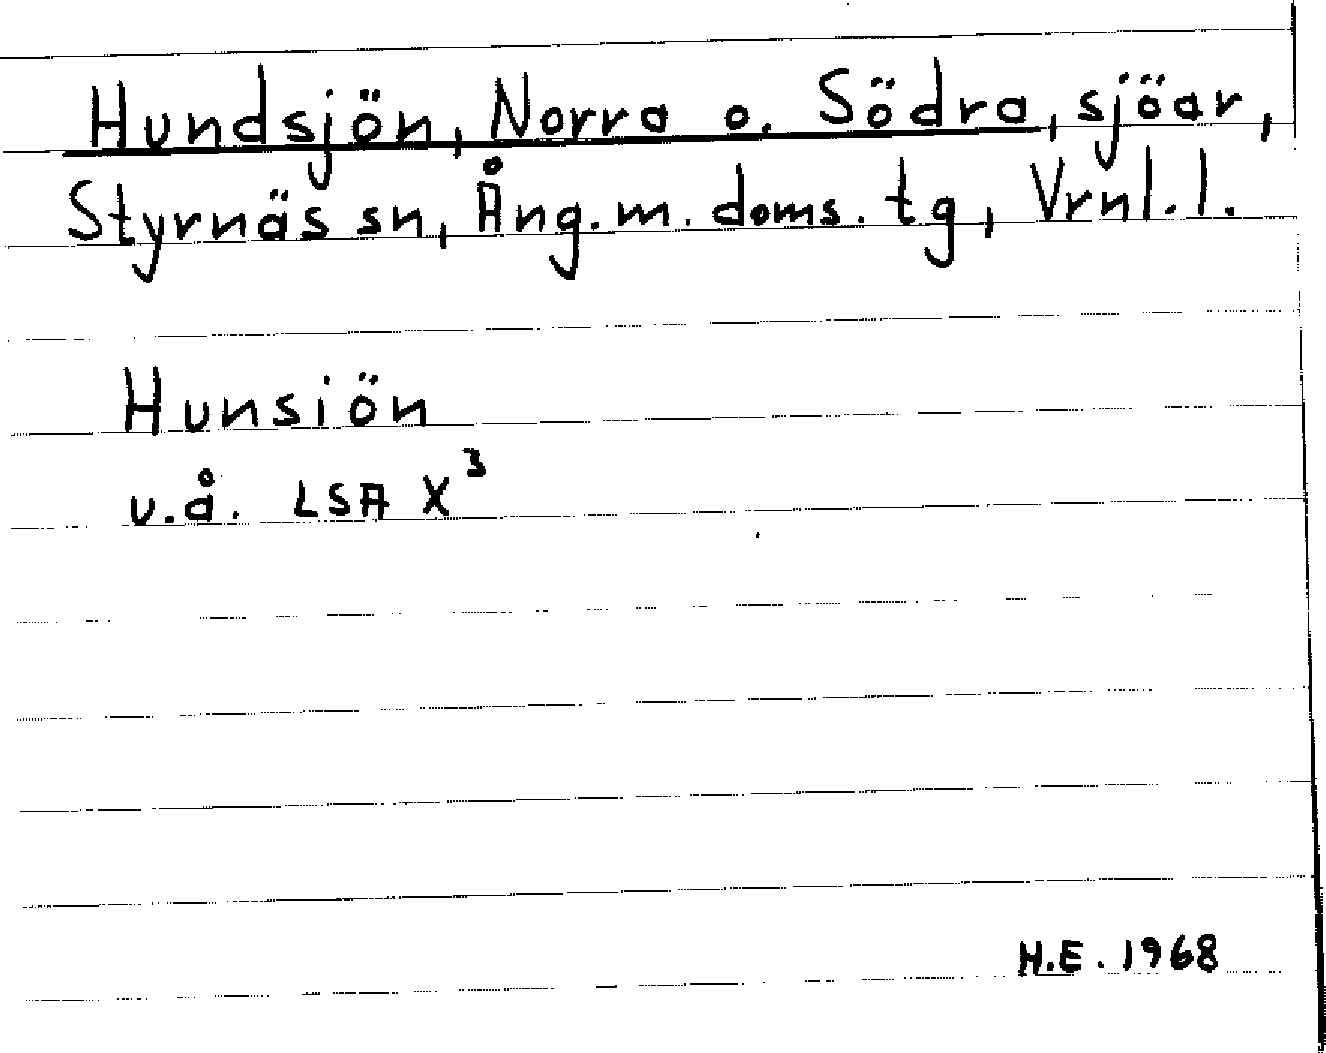 Hundsjön, Norra o. Södra, sjöar,
Styrnäs sn, Ång.m. doms. tg, Vrnl.l.
Hunsiön
u.å. LSA X³
H.E. 1968